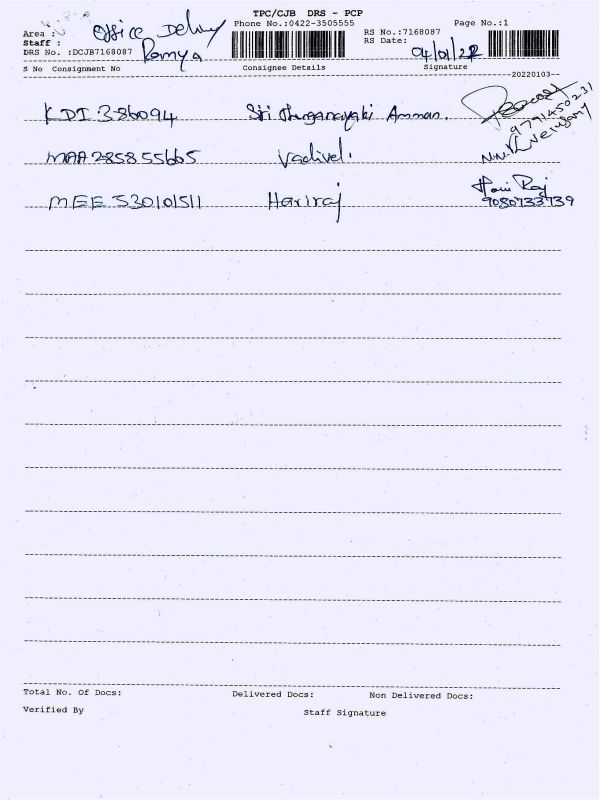 TPC/CJB DRS - PCP
Area : Office Delivery Phone No.:0422-3505555 Page No.:1
RS No.:7168087
Staff : Ramya RS Date: 04/01/22
DRS No. :DCJB7168087
S No Consignment No Consignee Details Signature
20220103
KDI 386094 Sri Thurganayaki Amman.
9791450231
MAA 285855665 Vadivel. N.N. Velusamy
MEE 530101511 Hariraj Hari Raj
9080733739
Total No. Of Docs: Delivered Docs: Non Delivered Docs:
Verified By Staff Signature